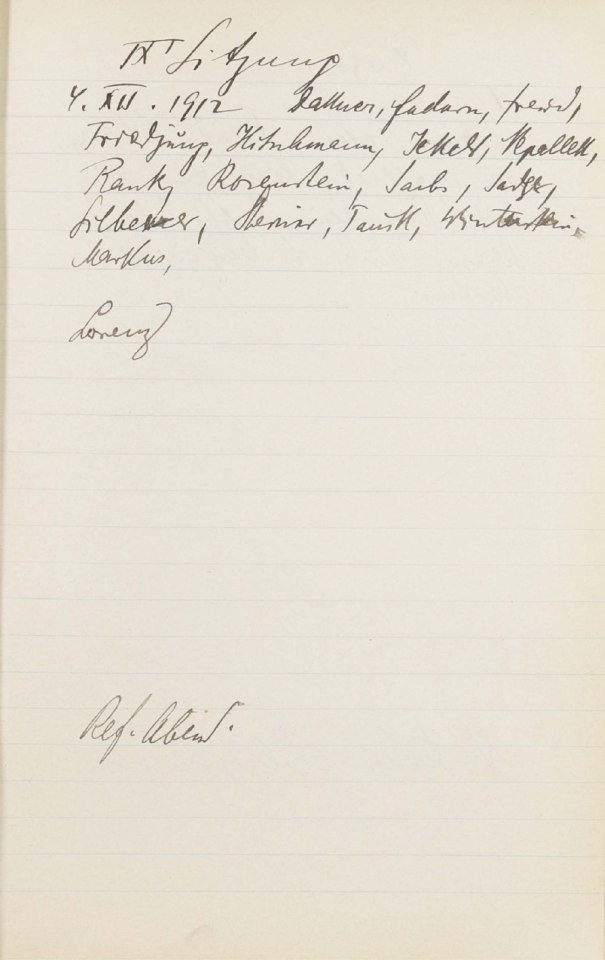 IXte Sitzung
4. XII. 1912 Dattner, Federn, Freud,
Friedjung, Hitschmann, Jekels,
Rank, Rosenstein, Sachs, Sadger,
Silberer, Steiner, Tausk, Winterstein,
Markus,
Lorenz
Ref. Abend.